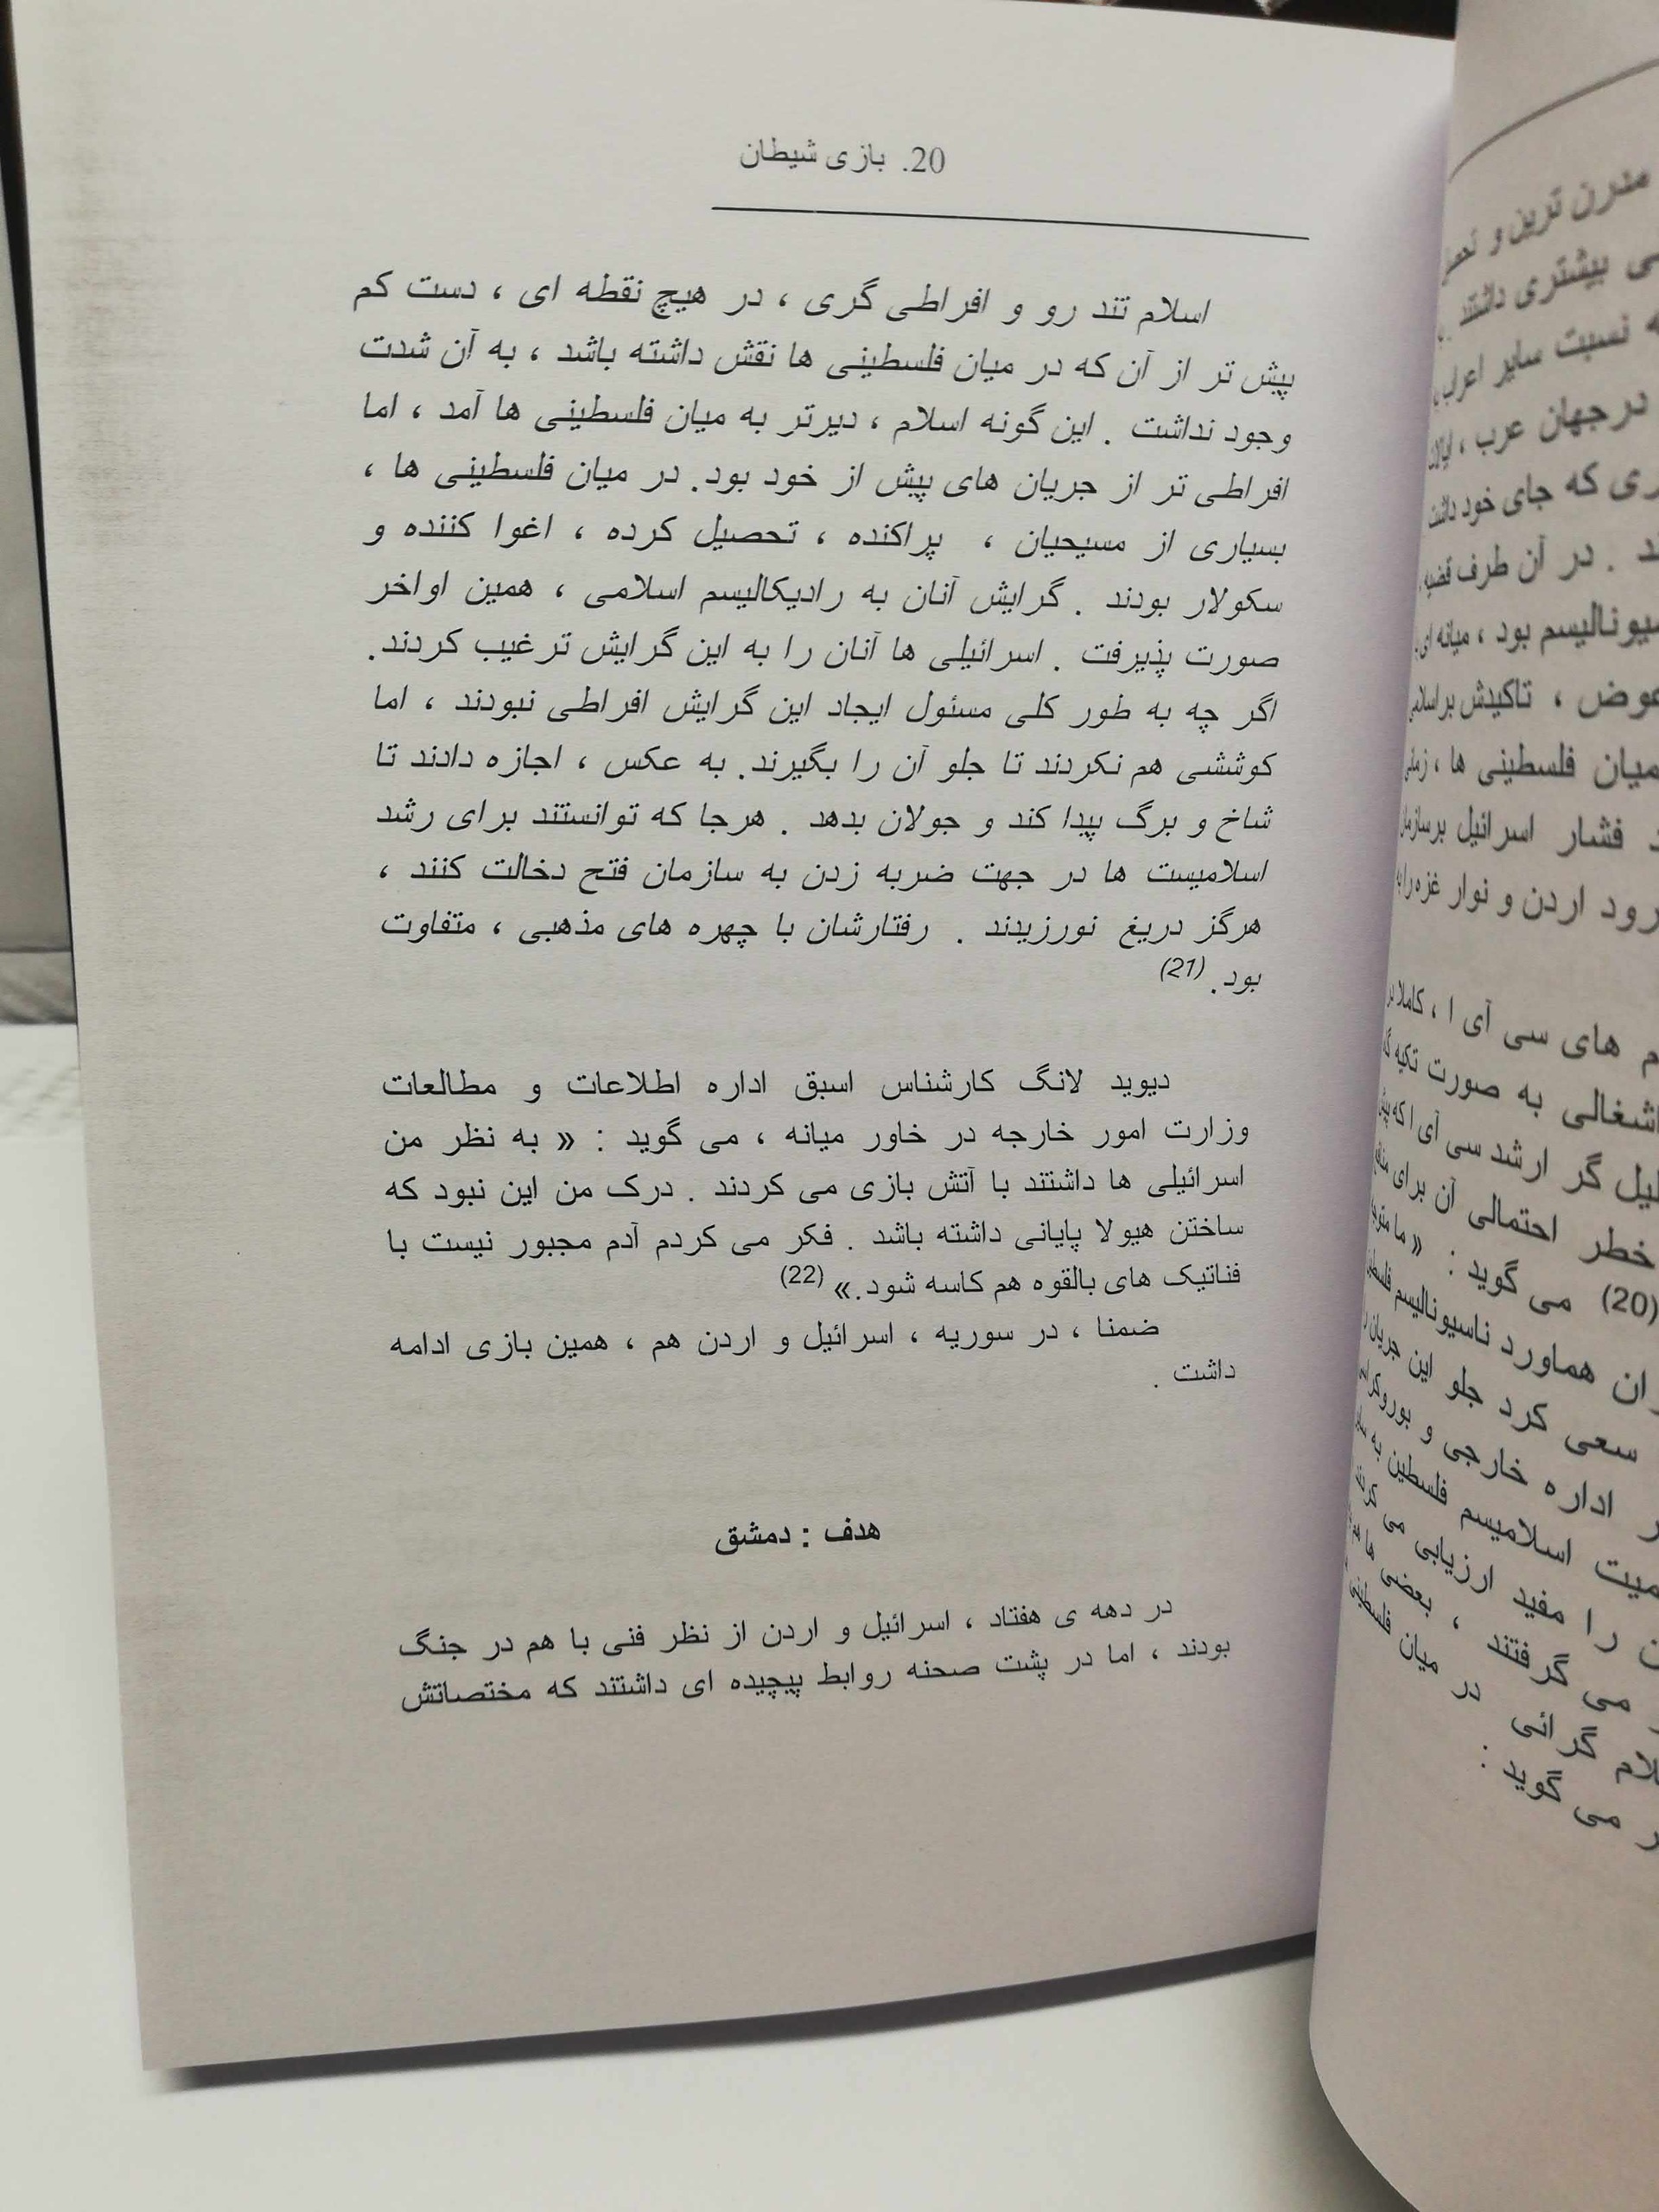 20. بازی شیطان
اسلام تند رو و افراطی گری ، در هیچ نقطه ای ، دست کم
پیش تر از آن که در میان فلسطینی ها نقش داشته باشد ، به آن شدت
وجود نداشت . این گونه اسلام ، دیرتر به میان فلسطینی ها آمد ، اما
افراطی تر از جریان های پیش از خود بود. در میان فلسطینی ها ،
بسیاری از مسیحیان ، پراکنده ، تحصیل کرده ، اغوا کننده و
سکولار بودند . گرایش آنان به رادیکالیسم اسلامی ، همین اواخر
صورت پذیرفت . اسرائیلی ها آنان را به این گرایش ترغیب کردند.
اگر چه به طور کلی مسئول ایجاد این گرایش افراطی نبودند ، اما
کوششی هم نکردند تا جلو آن را بگیرند. به عکس ، اجازه دادند تا
شاخ و برگ پیدا کند و جولان بدهد . هرجا که توانستند برای رشد
اسلامیست ها در جهت ضربه زدن به سازمان فتح دخالت کنند ،
هرگز دریغ نورزیدند . رفتارشان با چهره های مذهبی ، متفاوت
بود. (21)
دیوید لانگ کارشناس اسبق اداره اطلاعات و مطالعات
وزارت امور خارجه در خاور میانه ، می گوید : « به نظر من
اسرائیلی ها داشتند با آتش بازی می کردند . درک من این نبود که
ساختن هیولا پایانی داشته باشد . فکر می کردم آدم مجبور نیست با
فناتیک های بالقوه هم کاسه شود.» (22)
ضمنا ، در سوریه ، اسرائیل و اردن هم ، همین بازی ادامه
داشت .
هدف : دمشق
در دهه ی هفتاد ، اسرائیل و اردن از نظر فنی با هم در جنگ
بودند ، اما در پشت صحنه روابط پیچیده ای داشتند که مختصاتش
مدرن ترین و
بیشتری داشتند
نسبت سایر اعراب
درجهان عرب ،
که جای خود داشت
. در آن طرف قضیه
بود ، میانه ای
، تاکیدش بر
میان فلسطینی ها ،
فشار اسرائیل بر
رود اردن و نوار غزه را
های سی آی ا ، کاملا
به صورت تکیه
گر ارشد سی آی ا که
خطر احتمالی آن برای
(20) می گوید : « ما
هماورد ناسیونالیسم
سعی کرد جلو این جریان
اداره خارجی و
اسلامیسم فلسطین به
را مفید ارزیابی می
می گرفتند ، بعضی ها
گرائی در میان
می گوید :